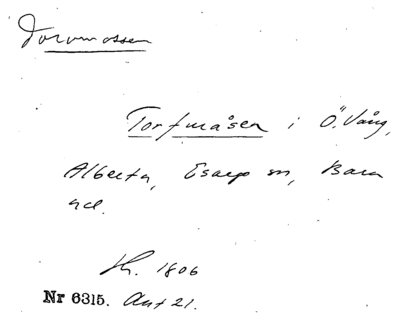 Torvmossen
Torfmåsen i Ö. Vång,
Alberta, Esarp sn, Bara
hd.
h. 1806
Nr 6315. Ant 21.